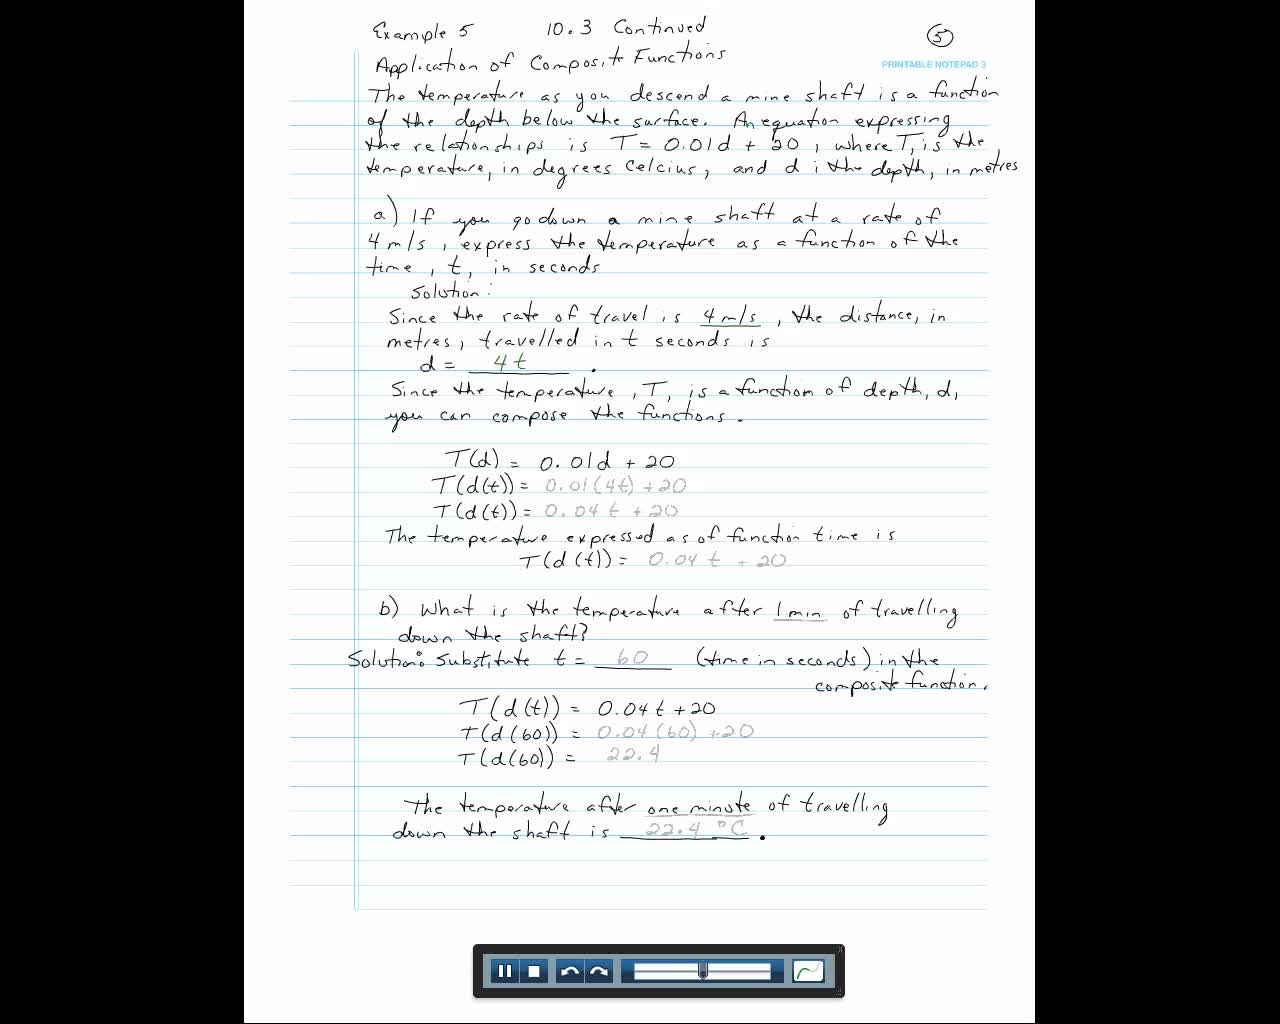 Example 5 10.3 Continued 5
Application of Composite Functions
PRINTABLE NOTEPAD 3
The temperature as you descend a mine shaft is a function
of the depth below the surface. An equation expressing
the relationships is T = 0.01d + 20, where T, is the
temperature, in degrees Celcius, and d i the depth, in metres
a) If you go down a mine shaft at a rate of
4 m/s, express the temperature as a function of the
time, t, in seconds
Solution:
Since the rate of travel is 4 m/s, the distance, in
metres, travelled in t seconds is
d = 4t.
Since the temperature, T, is a function of depth, d,
you can compose the functions.
T(d) = 0.01d + 20
T(d(t)) = 0.01(4t) + 20
T(d(t)) = 0.04t + 20
The temperature expressed as of function time is
T(d(t)) = 0.04t + 20
b) What is the temperature after 1 min of travelling
down the shaft?
Solution: Substitute t = 60 (time in seconds) in the
composite function.
T(d(t)) = 0.04t + 20
T(d(60)) = 0.04(60) + 20
T(d(60)) = 22.4
The temperature after one minute of travelling
down the shaft is 22.4 °C.